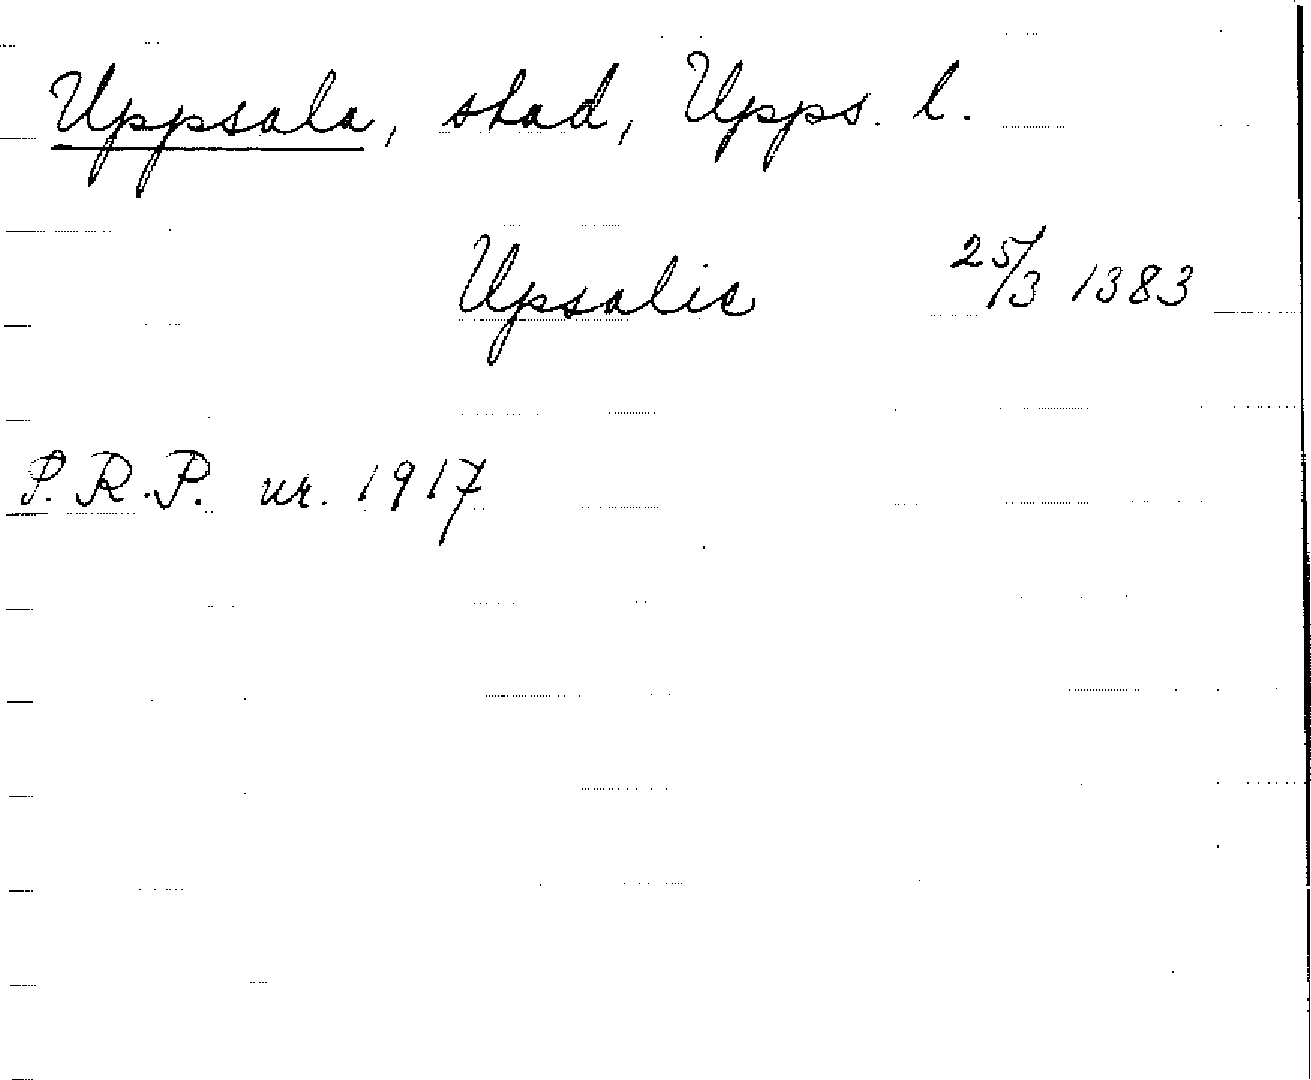 Uppsala, stad, Upps. l.
Upsalie 25/3 1383
S.R.P. nr. 1917